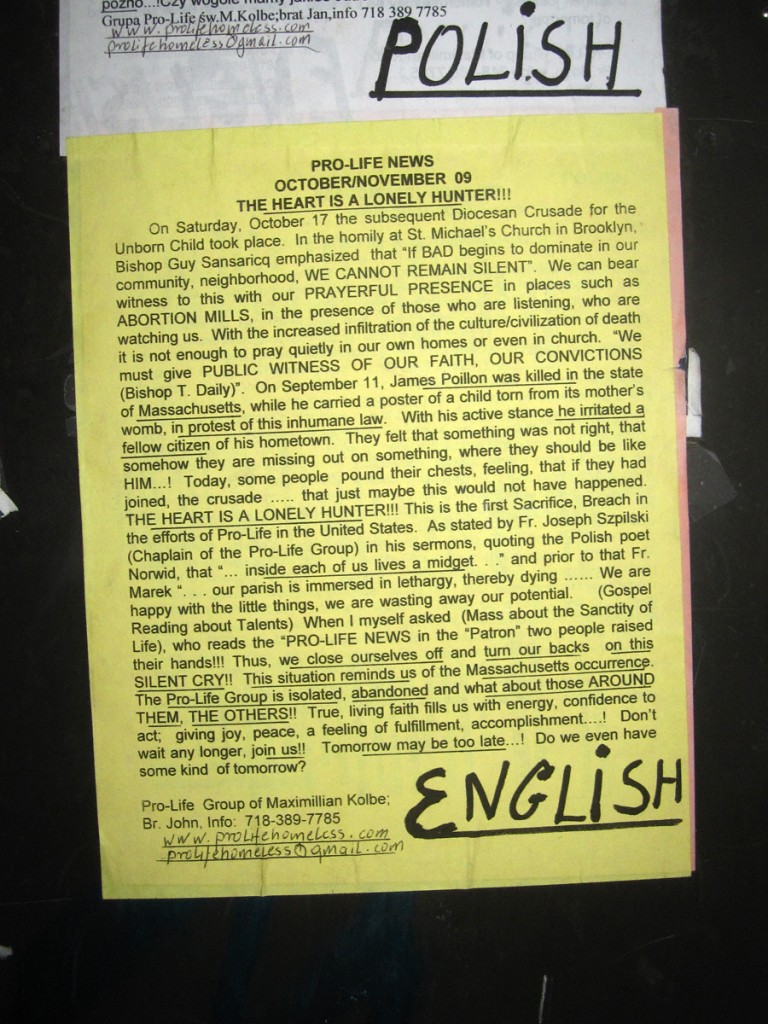 pozno...!Czy wogole mamy jakies
Grupa Pro-Life św.M.Kolbe;brat Jan,info 718 389 7785
www.prolifehomeless.com
prolifehomeless@gmail.com
POLiSH
PRO-LIFE NEWS
OCTOBER/NOVEMBER 09
THE HEART IS A LONELY HUNTER!!!
On Saturday, October 17 the subsequent Diocesan Crusade for the
Unborn Child took place. In the homily at St. Michael's Church in Brooklyn,
Bishop Guy Sansaricq emphasized that "If BAD begins to dominate in our
community, neighborhood, WE CANNOT REMAIN SILENT". We can bear
witness to this with our PRAYERFUL PRESENCE in places such as
ABORTION MILLS, in the presence of those who are listening, who are
watching us. With the increased infiltration of the culture/civilization of death
it is not enough to pray quietly in our own homes or even in church. "We
must give PUBLIC WITNESS OF OUR FAITH, OUR CONVICTIONS
(Bishop T. Daily)". On September 11, James Poillon was killed in the state
of Massachusetts, while he carried a poster of a child torn from its mother's
womb, in protest of this inhumane law. With his active stance he irritated a
fellow citizen of his hometown. They felt that something was not right, that
somehow they are missing out on something, where they should be like
HIM...! Today, some people pound their chests, feeling, that if they had
joined, the crusade ..... that just maybe this would not have happened.
THE HEART IS A LONELY HUNTER!!! This is the first Sacrifice, Breach in
the efforts of Pro-Life in the United States. As stated by Fr. Joseph Szpilski
(Chaplain of the Pro-Life Group) in his sermons, quoting the Polish poet
Norwid, that "... inside each of us lives a midget. . ." and prior to that Fr.
Marek ". . . our parish is immersed in lethargy, thereby dying ...... We are
happy with the little things, we are wasting away our potential. (Gospel
Reading about Talents) When I myself asked (Mass about the Sanctity of
Life), who reads the "PRO-LIFE NEWS in the "Patron" two people raised
their hands!!! Thus, we close ourselves off and turn our backs on this
SILENT CRY!! This situation reminds us of the Massachusetts occurrence.
The Pro-Life Group is isolated, abandoned and what about those AROUND
THEM, THE OTHERS!! True, living faith fills us with energy, confidence to
act; giving joy, peace, a feeling of fulfillment, accomplishment....! Don't
wait any longer, join us!! Tomorrow may be too late...! Do we even have
some kind of tomorrow?
Pro-Life Group of Maximillian Kolbe;
Br. John, Info: 718-389-7785
www.prolifehomeless.com
prolifehomeless@gmail.com
ENGLiSH